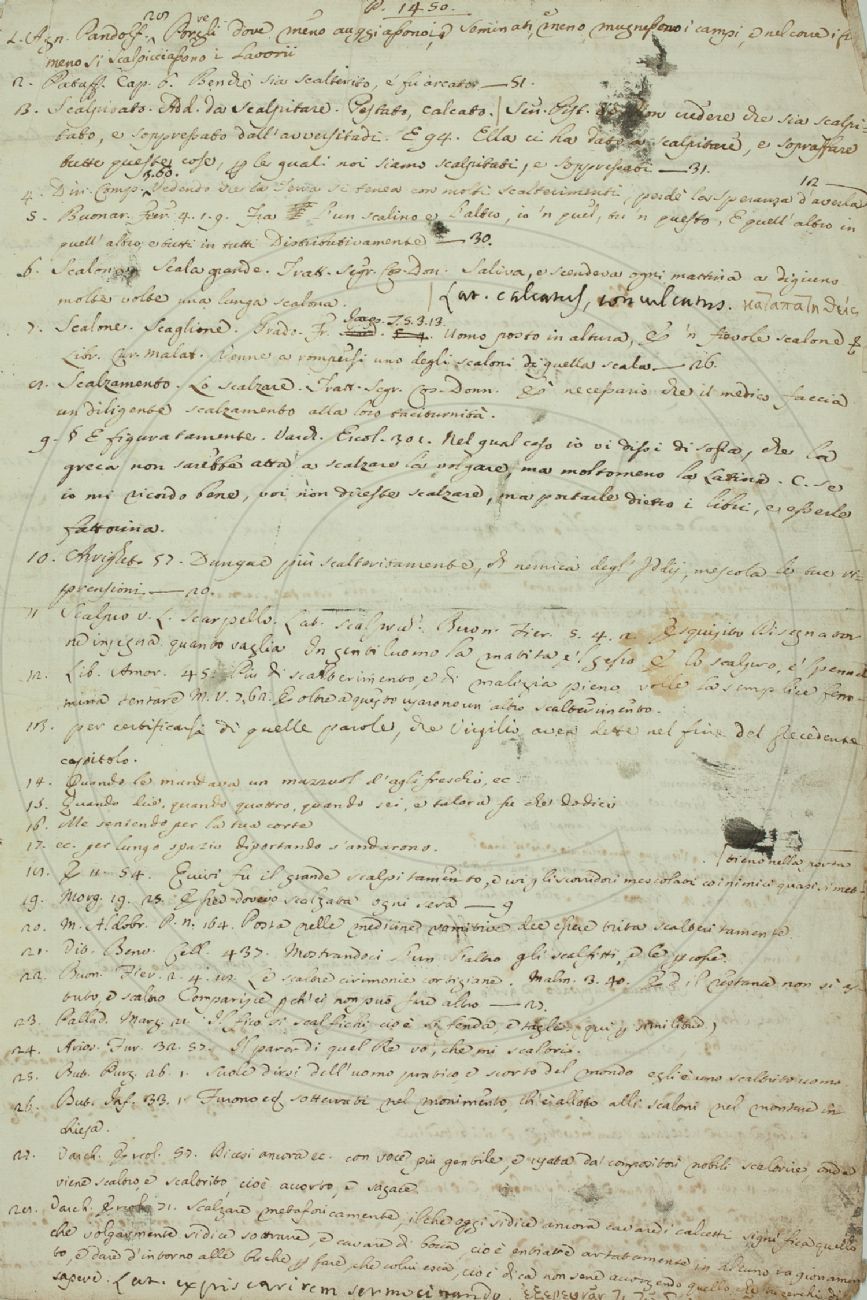 P. 1450.
1. Agn. Pandolf. 20. Porgli dove meno auggiassono i seminati, e meno mugnessono i campi, e nel corre i
meno si scalpicciassono i Lavorii
2. Pataff. Cap. 6. Benchè sia scalterito, e fu arcato — 51.
3. Scalpitato. Add. da Scalpitare. Pestato, calcato. | Sen. Pist. Non credere che sia scalpi-
tato, e soppressato dall'avversitadi. E 94. Ella ci ha dato a scalpitare, e soprastare
tutte queste cose, per le quali noi siamo scalpitati, e soppressati — 31.
4. Din. Comp. 3.60. Vedendo che la Terra si tenea con molti scalterimenti, perdè la speranza d'averla 12 —
5. Buonar. Fier. 4. 1. 9. Fra l'un scalino e l'altro, io 'n quel, tu 'n questo, E quell'altro in
quell'altro, e tutti in tutti Distributivamente — 30.
6. Scalona. Scala grande. Tratt. Segr. Cos. Don. Saliva, e scendeva ogni mattina a digiuno
molte volte una lunga scalona. | Lat. calcatus, conculcatus. καταπατηθείς
7. Scalone. Scaglione. Grado. Fr. Jacop. T. 5. 3. 13. Uomo posto in altura, È 'n fievole scalone
Libr. cur. malat. Venne a rompersi uno degli scaloni di quella scala. — 26.
8. Scalzamento. Lo scalzare. Tratt. Segr. Cos. Donn. È necessario che il medico faccia
un diligente scalzamento alla loro taciturnità.
9. § E figuratamente. Varch. Ercol. 301. Nel qual caso io vi dissi di sopra, che la
greca non sarebbe atta a scalzare la volgare, ma molto meno la Latina. C. Se
io mi ricordo bene, voi non diceste scalzare, ma portarle dietro i libri, e esserle
fattorina.
10. Arrighet. 57. Dunque più scalteritamente, O nemica degl'Iddii, mescola le tue ri-
prensioni — 20.
11. Scalpro v. L. Scarpello. Lat. scalprum. Buon. Fier. 5. 4. 2. Esquisito disegnator
ne insegna quanto vaglia In gentiluomo la matita, e 'l gesso E lo scalpro, e 'l pennel
12. Lib. Amor. 45. Più di scalterimento, e di malizia pieno volle la semplice fem-
mina tentare M. V. 7. 62. E oltre a questo usarono un altro scalterimento.
13. per certificarsi di quelle parole, che Virgilio avea dette nel fine del precedente
capitolo.
14. Quando le mandava un mazzuol d'agli freschi, ec.
15. Quando due, quando quattro, quando sei, e talora fu che dodici
16. Me sentendo per la tua corte
17. ec. per lungo spazio diportando s'andarono.
18. E 11. 54. Quivi fu il grande scalpitamento, e ivi gli scorridori mescolati co' inimici quasi insie-
19. Morg. 19. 28. e piè dovevo scalzata ogni sera — 9
20. M. Aldobr. P. N. 164. Posta nelle medicine vomitive dee essere trita scalteritamente.
21. Dib. Benv. Cell. 437. Mostrandoci l'un l'altro gli scalfitti, e le percosse.
22. Buon. Fier. 2. 4. 18. Le scaltre cirimonie cortigiane. Malm. 3. 40. E il restante non si è
tuto, e scaltro Comparisce perch'ei non può far altro — 27.
23. Pallad. Marz. 21. Il fico si scalfichi cioè si fenda, e tagli. qui per similitud)
24. Arios. Fur. 32. 57. Il paron di quel che vo, che mi scaltrì.
25. But. Purg. 26. 1. Suole dirsi dell'uomo pratico e scorto del mondo egli è uno scaltrito uomo
26. But. Inf. 33. 1. Furono sotterrati nel monimento, ch'è allato alli scaloni nel montare in
chiesa.
27. Varch. Ercol. 57. Dicesi ancora ec. con voce più gentile, e usata da' compositori nobili scaltrire, onde
viene scaltro, e scaltrito, cioè accorto, e sagace.
28. Varch. Ercol. 71. Scalzare metaforicamente, il che oggi si dice ancora cavare i calcetti significa quello,
che volgarmente si dice sottrarre, e cavare di bocca, cioè entrare artatamente in alcuno ragionamen
to, e dare d'intorno alle buche per fare, che colui esca, cioè dica non sene accorgendo quello, che tu cerchi di
sapere. Lat. expiscari rem sermocinando